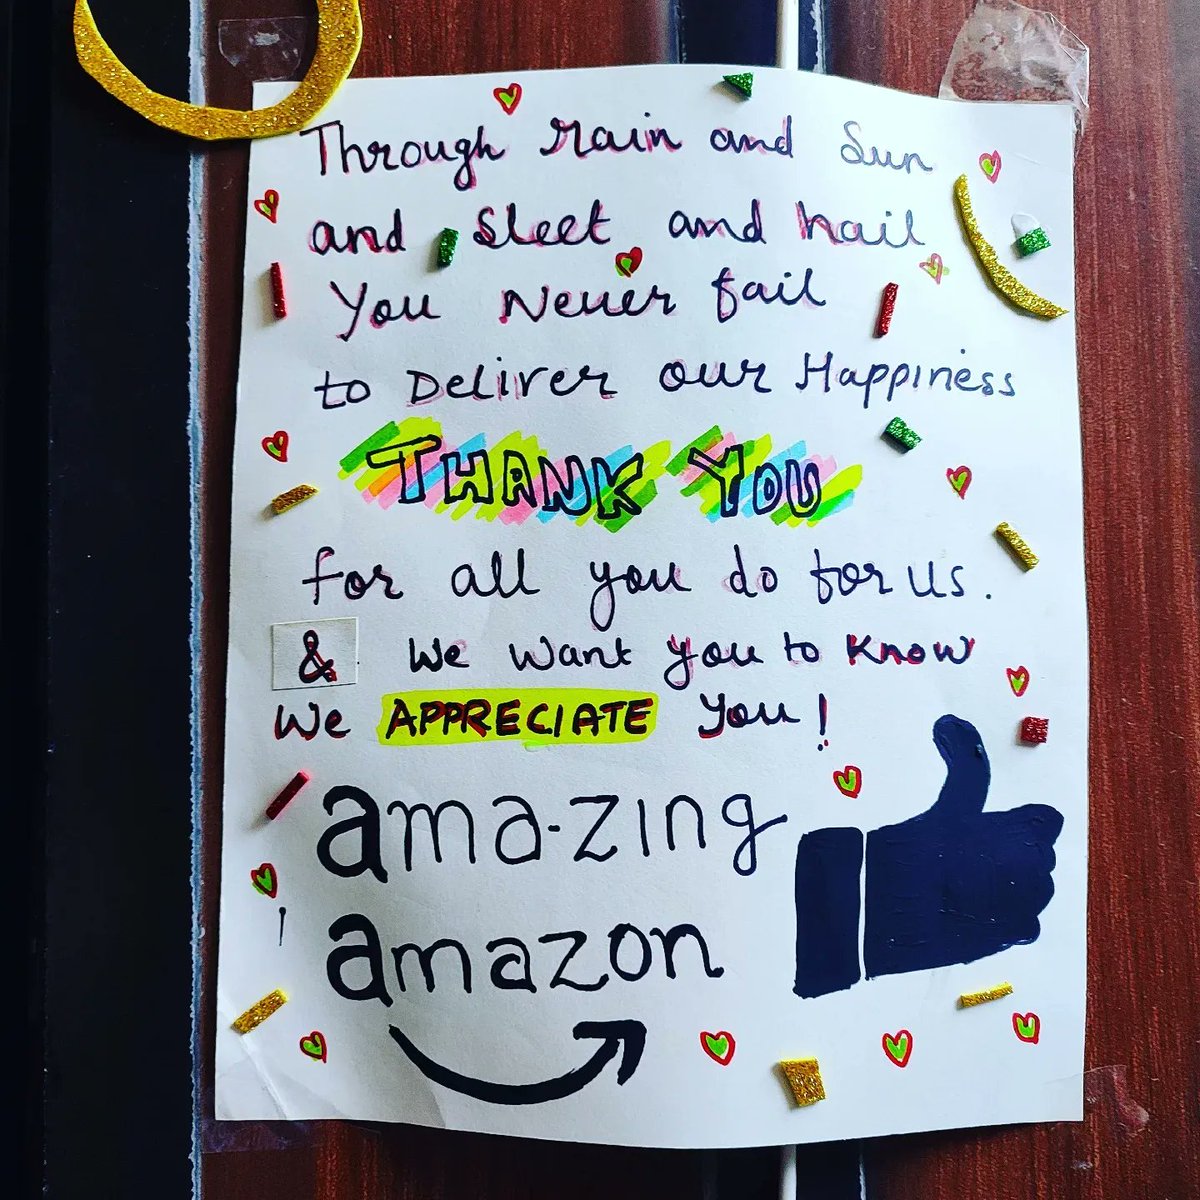 Through rain and Sun
and Sleet and hail
You Never fail
to Deliver our Happiness
THANK YOU
for all you do for us.
& We want you to Know
We APPRECIATE You!
ama-zing
amazon